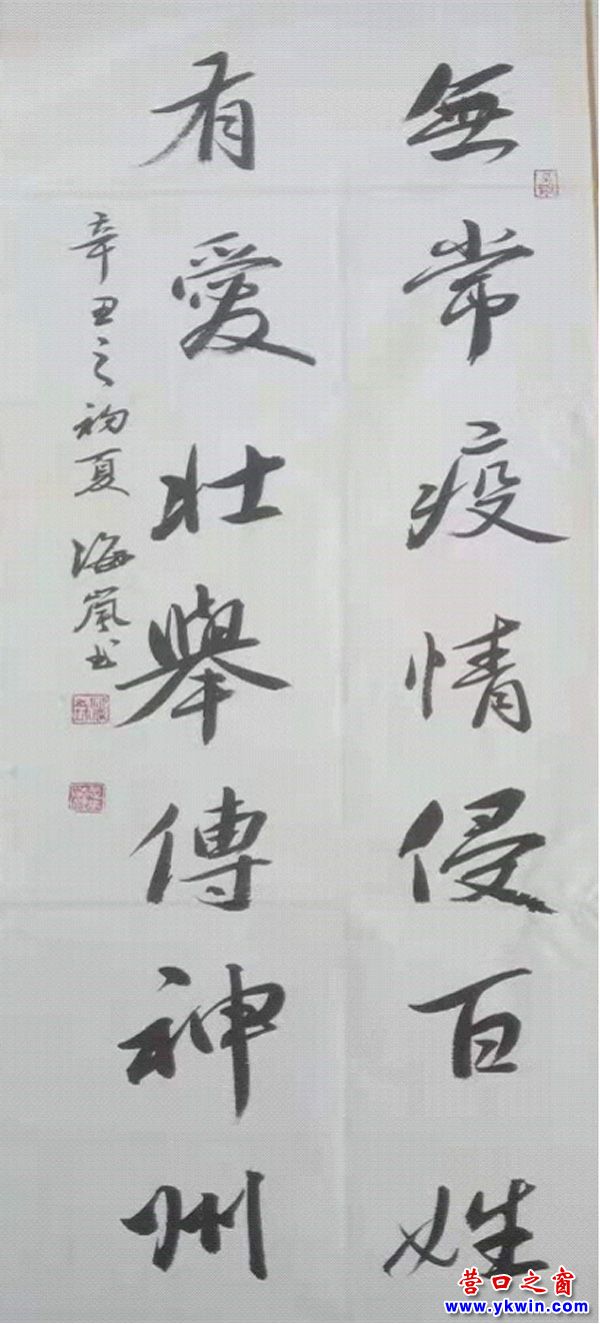 無常疫情侵百姓
有愛壯舉傳神州
辛丑之初夏 海嵐书
营口之窗
www.ykwin.com